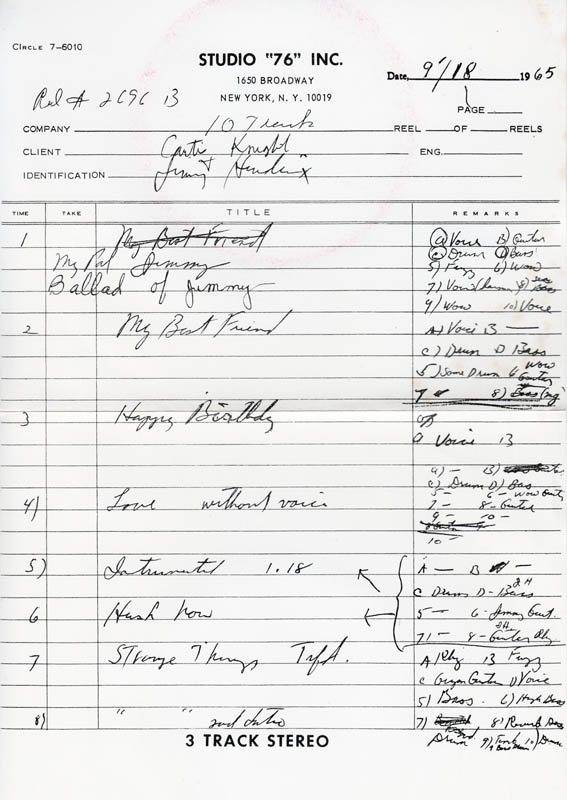 CIrcle 7-6010
STUDIO "76" INC.
1650 BROADWAY
NEW YORK, N. Y. 10019
Date, 9/18 1965
Rel # 2696 13
PAGE
COMPANY 10 Track REEL OF REELS
CLIENT Curtis Knight ENG.
IDENTIFICATION + Jimmy Hendrix
TIME TAKE TITLE REMARKS
1 My Best Friend A) Voice B) Guitar
My Pal Jimmy C) Drum D) Bass
5) Fuzz 6) Wow
Ballad of Jimmy 7) Voice 8) Bass
9) Wow 10) Voice
2 My Best Friend A) Voice B —
C) Drum D Bass
5) Some Drum 6 Wow Guitar
7 8) Bass
3 Happy Birthday
A Voice B
A) — B)
C) Drum D) Bas
4) Love without voice 5 — 6 - Wow Guitar
7 — 8 - Guitar
9 — 10 —
10 —
5) Instrumental 1.18 A — B —
C Drum D - Bass
6 Hush Now 5 — 6 - Jimmy Guit.
7) — 8 - Guitar Rhy
7 Strange Things A Rhy B Fuzz
C Guitar D Voice
5) Bass. 6) High Bass
8) " " 7) 8) Reverb
Drum 9) 10) Drum
3 TRACK STEREO